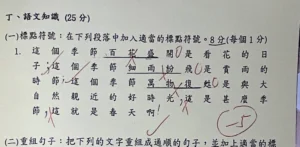 丁、語文知識 (25分)
(一)標點符號：在下列段落中加入適當的標點符號。8分(每個1分)
1. 這個季節百花盛開 是看花的日
子；這個季節細雨紛飛 是賞雨的
時節；這個季節萬物復甦 是與大
自然觀近的好時光，這是甚麼季
節，這就是春天啊！
-5
(二)重組句子：把下列的文字重組成通順的句子，並加上適當的標